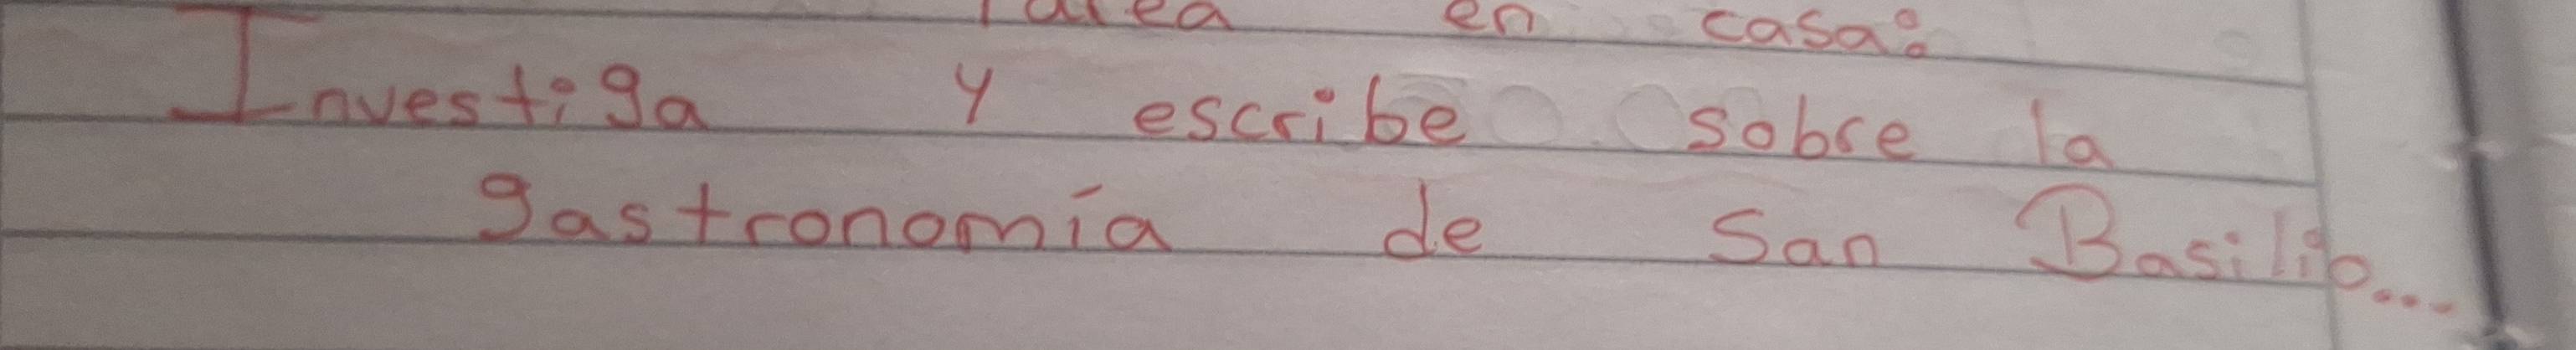 Tarea en casa:
Investiga y escribe sobre la
gastronomía de San Basilio...